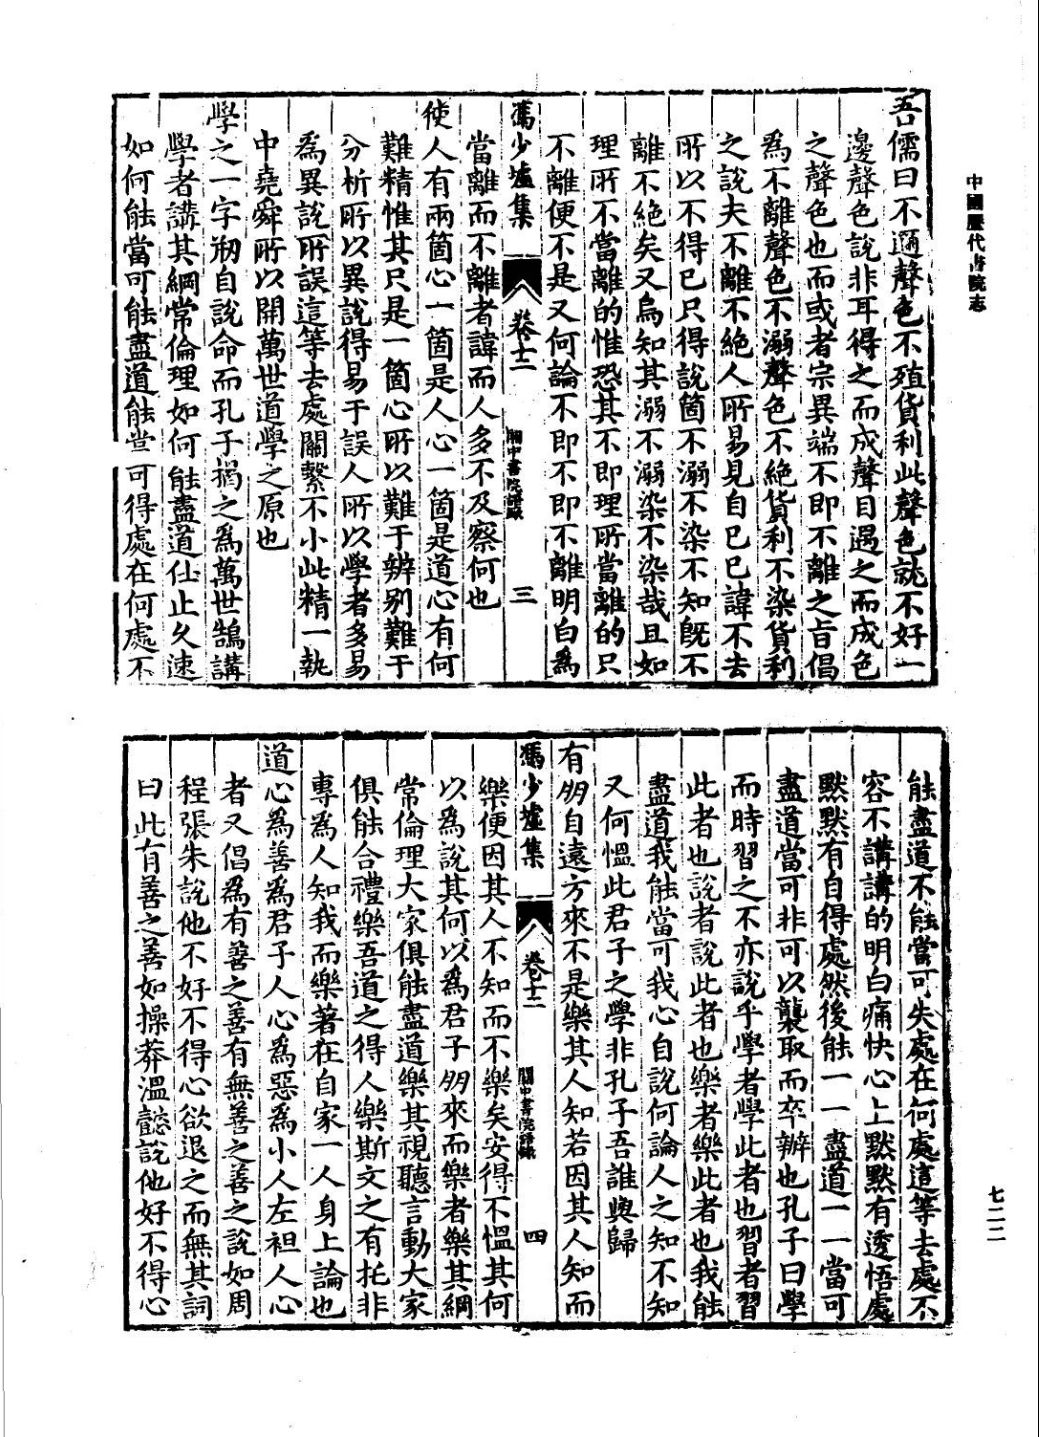 中國歷代書院志
吾儒曰不邇聲色不殖貨利此聲色就不好一
邊聲色說非耳得之而成聲目遇之而成色
之聲色也而或者宗異端不即不離之旨倡
爲不離聲色不溺聲色不絕貨利不染貨利
之說夫不離不絕人所易見自已已諱不去
所以不得已只得說箇不溺不染不知旣不
離不絕矣又烏知其溺不溺染不染哉且如
理所不當離的惟恐其不即理所當離的只
不離便不是又何論不即不即不離明白爲
馮少墟集
卷十二
關中書院語錄
三
當離而不離者諱而人多不及察何也
使人有兩箇心一箇是人心一箇是道心有何
難精惟其只是一箇心所以難于辨别難于
分析所以異說得易于誤人所以學者多易
爲異說所誤這等去處關繫不小此精一執
中堯舜所以開萬世道學之原也
學之一字剏自說命而孔子揭之爲萬世鵠講
學者講其綱常倫理如何能盡道仕止久速
如何能當可能盡道能當可得處在何處不
能盡道不能當可失處在何處這等去處不
容不講講的明白痛快心上默默有透悟處
默默有自得處然後能一一盡道一一當可
盡道當可非可以襲取而卒辦也孔子曰學
而時習之不亦說乎學者學此者也習者習
此者也說者說此者也樂者樂此者也我能
盡道我能當可我心自說何論人之知不知
又何慍此君子之學非孔子吾誰與歸
有朋自遠方來不是樂其人知若因其人知而
馮少墟集
卷十二
關中書院語錄
四
樂便因其人不知而不樂矣安得不慍其何
以爲說其何以爲君子朋來而樂者樂其綱
常倫理大家俱能盡道樂其視聽言動大家
俱能合禮樂吾道之得人樂斯文之有托非
專為人知我而樂著在自家一人身上論也
道心為善為君子人心為惡為小人左袒人心
者又倡為有善之善有無善之善之說如周
程張朱說他不好不得心欲退之而無其詞
曰此有善之善如操莽溫懿說他好不得心
七二二